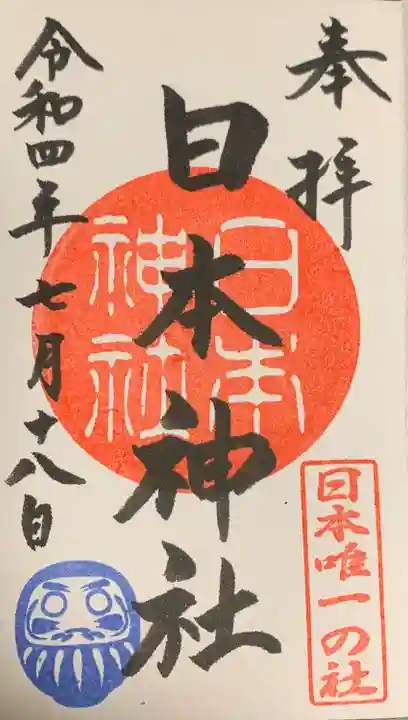 奉拝
日本神社
日本
神社
日本唯一の社
令和四年七月十八日